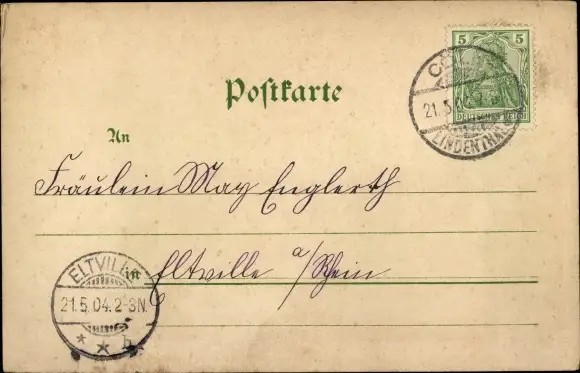 5 5
DEUTSCHES REICH
21.5.04
LINDENTHAL
Postkarte
An
Fräulein May Englerth
in Eltville a/Rhein
ELTVILLE
21.5.04.2-3N.
* * b